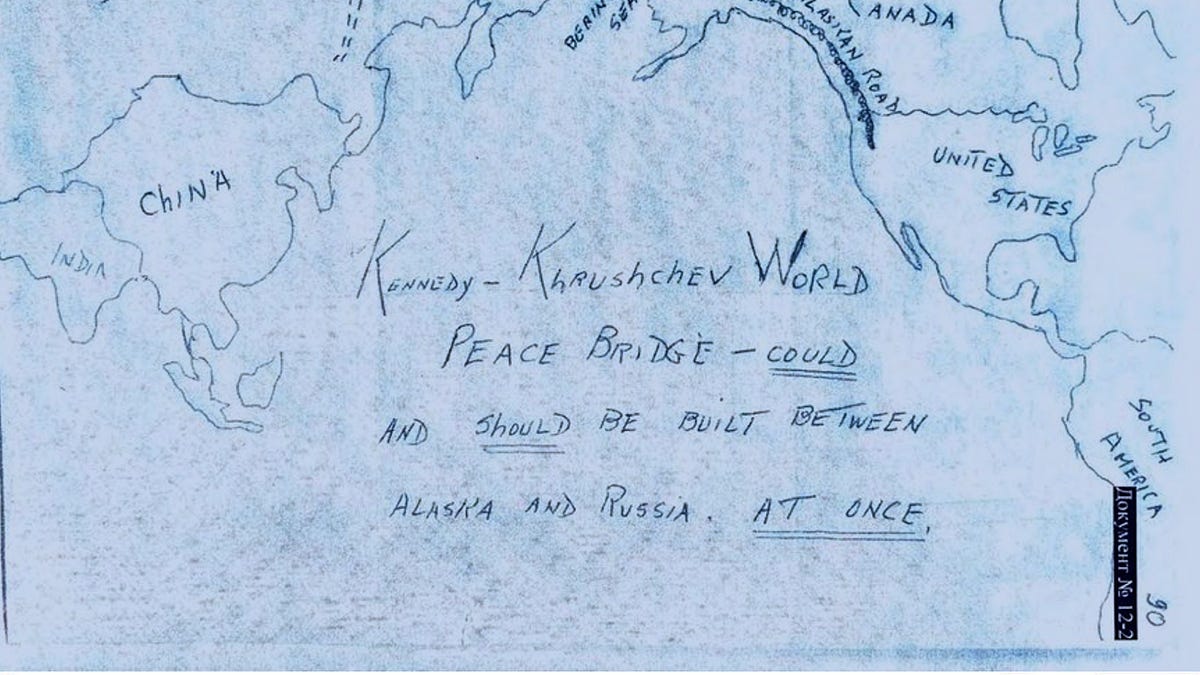 BERIN
SEA
ALASKAN ROAD
ANADA
UNITED
STATES
CHINA
INDIA
KENNEDY – KHRUSHCHEV WORLD
PEACE BRIDGE – COULD
AND SHOULD BE BUILT BETWEEN
ALASKA AND RUSSIA. AT ONCE.
SOUTH
AMERICA
Документ № 12-2
90